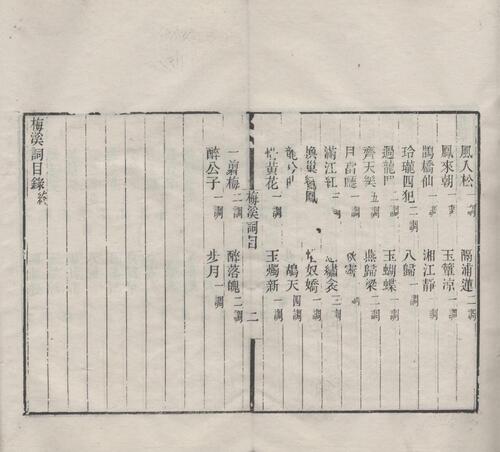 風入松一調 隔浦蓮二調
鳳來朝一調 玉簟涼一調
鵲橋仙一調 湘江靜一調
玲瓏四犯二調 八歸一調
過龍門二調 玉蝴蝶一調
齊天樂五調 燕歸梁二調
月當廳一調 秋霽一調
滿江紅二調 繡衣三調
換巢鸞鳳 奴嬌一調
龍吟曲 鴣天四調
黃花一調 玉燭新一調
梅溪詞目 二
一剪梅二調 醉落魄二調
醉公子一調 步月一調
梅溪詞目錄終